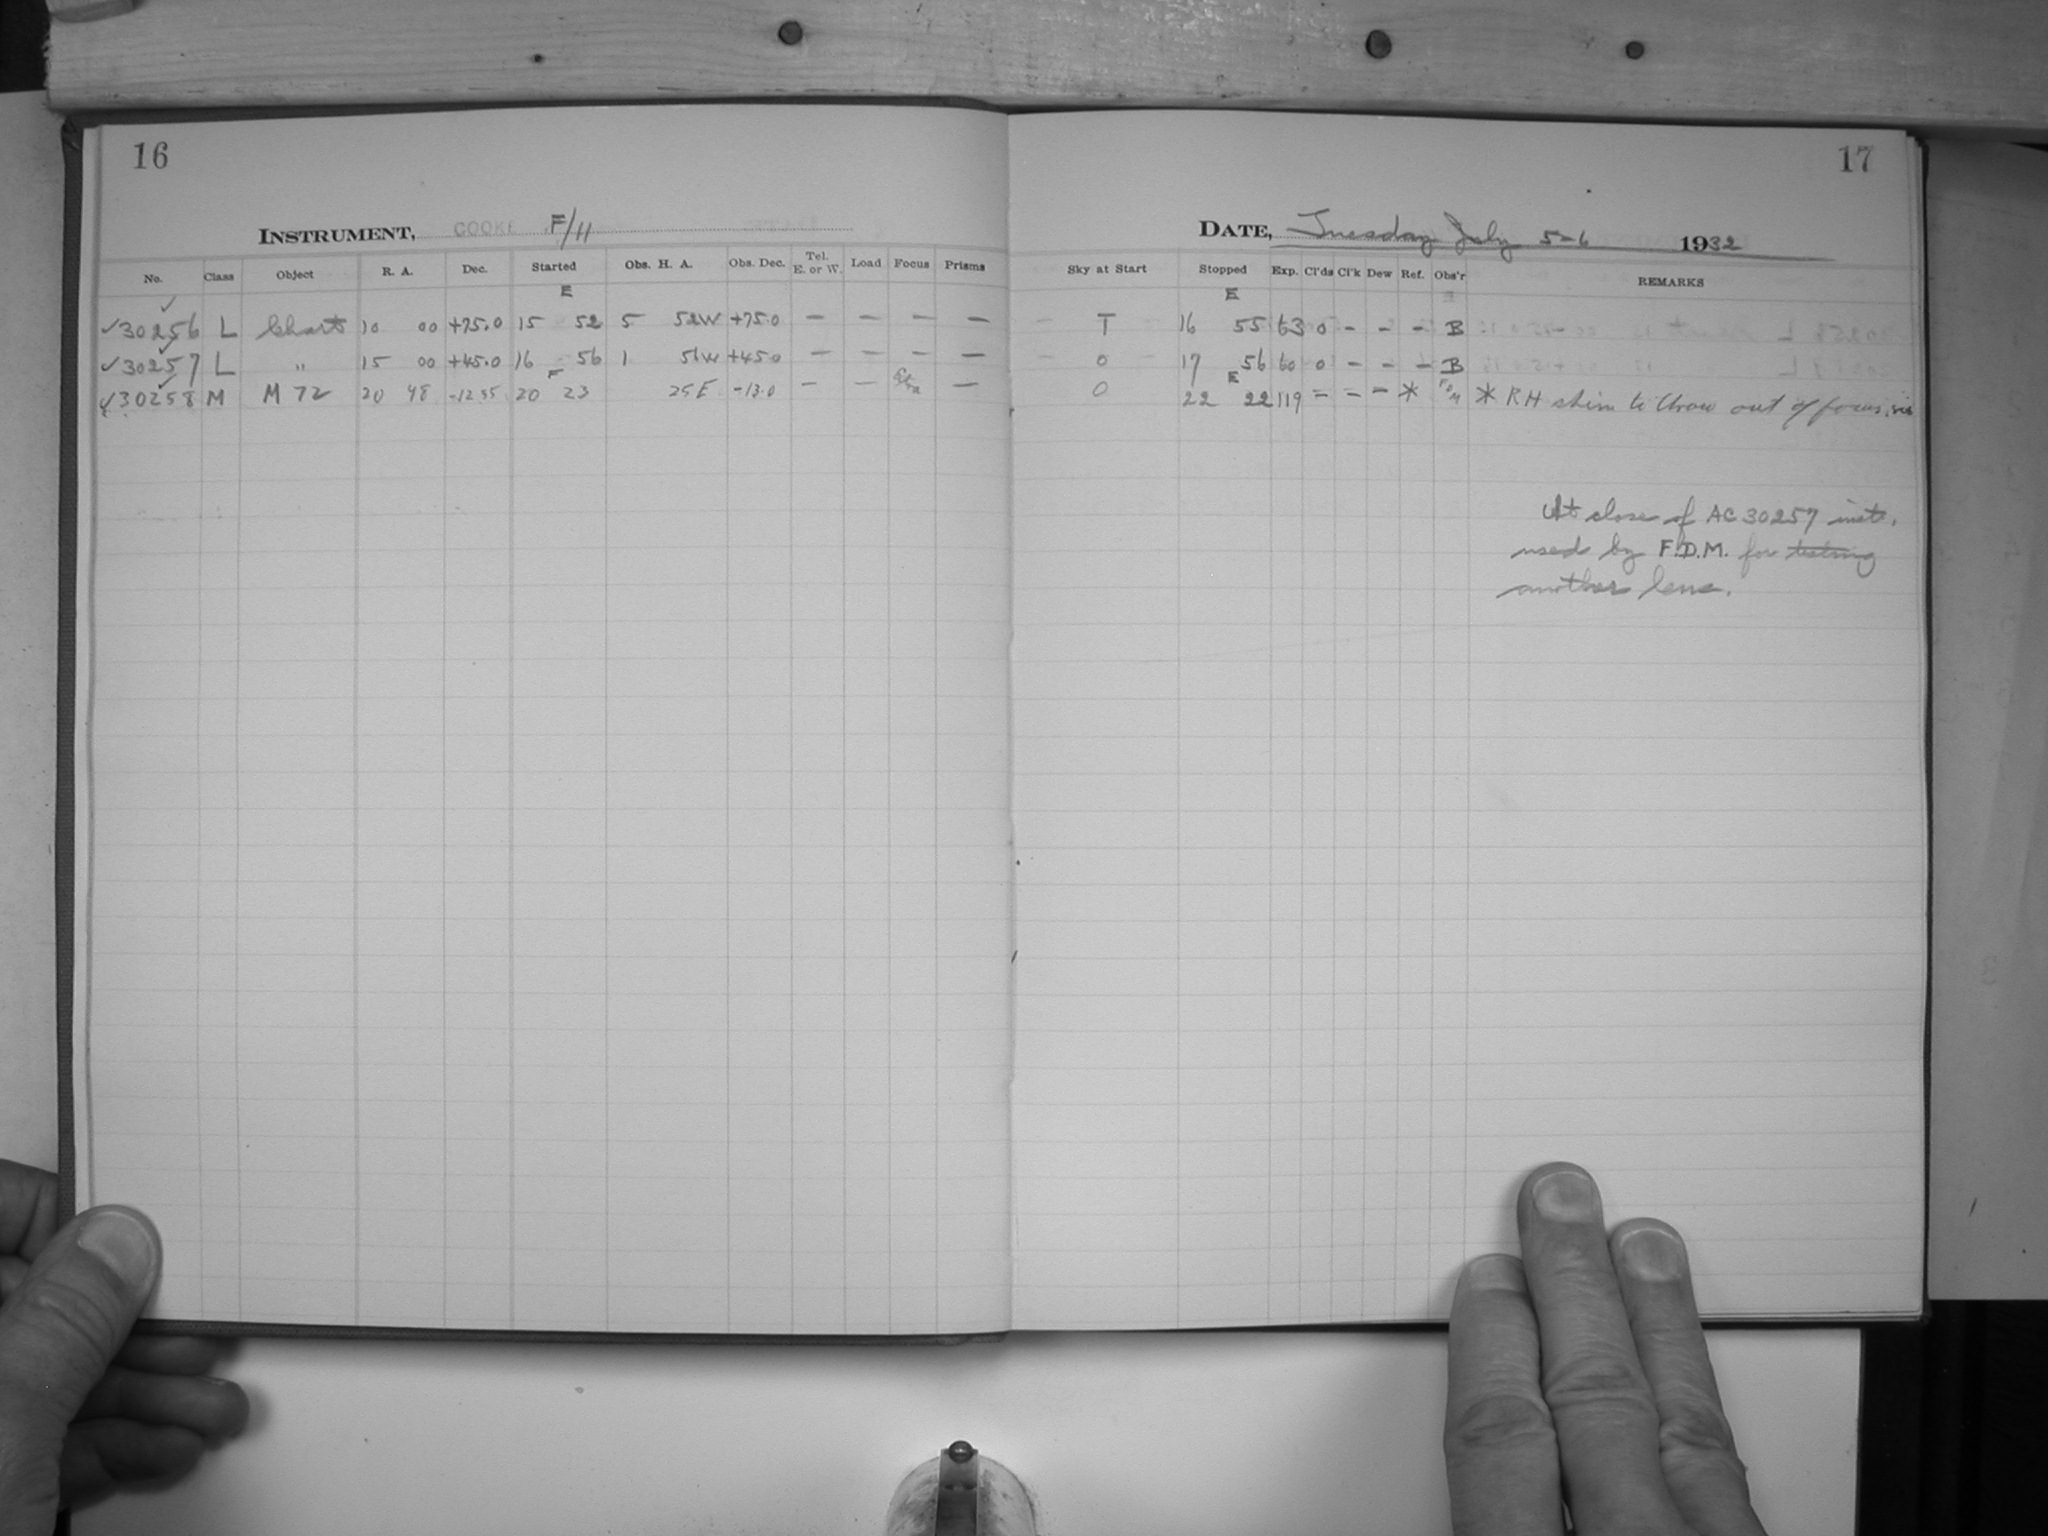 16
INSTRUMENT, COOKE F/11
No. Class Object R. A. Dec. Started Obs. H. A. Obs. Dec. Tel. E. or W. Load Focus Prisms
E
✓30256 L Chart 10 00 +75.0 15 52 5 52W +75.0 — — — —
✓30257 L " 15 00 +45.0 16 56 1 51W +45.0 — — — —
✓30258 M M 72 20 48 -12 55 20 23 25E -13.0 — — —
17
DATE, Tuesday July 5-6 1932
Sky at Start Stopped Exp. Cl'ds Cl'k Dew Ref. Obs'r REMARKS
E
T 16 55 63 0 - - - B
0 17 56 60 0 - - - B
E
0 22 22 119 - - - * FDM * RH shim to throw out of focus
At close of AC 30257 inst.
used by F.D.M. for testing
another lens.